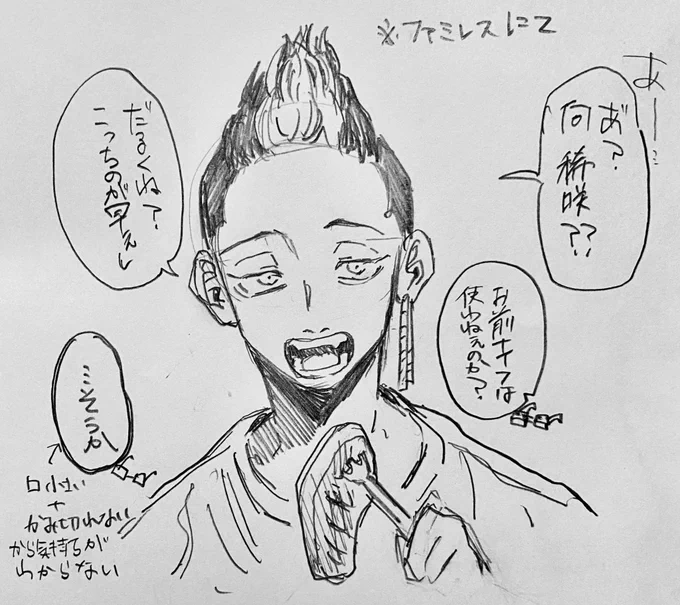 ※ファミレスにて
あー…
あ゛?
何
稀咲??
お前ナイフは
使わねぇのか?
だるくね?
こっちのが早ぇし
…そうか
口小さい
+
かみ切れない
から気持ちが
わからない